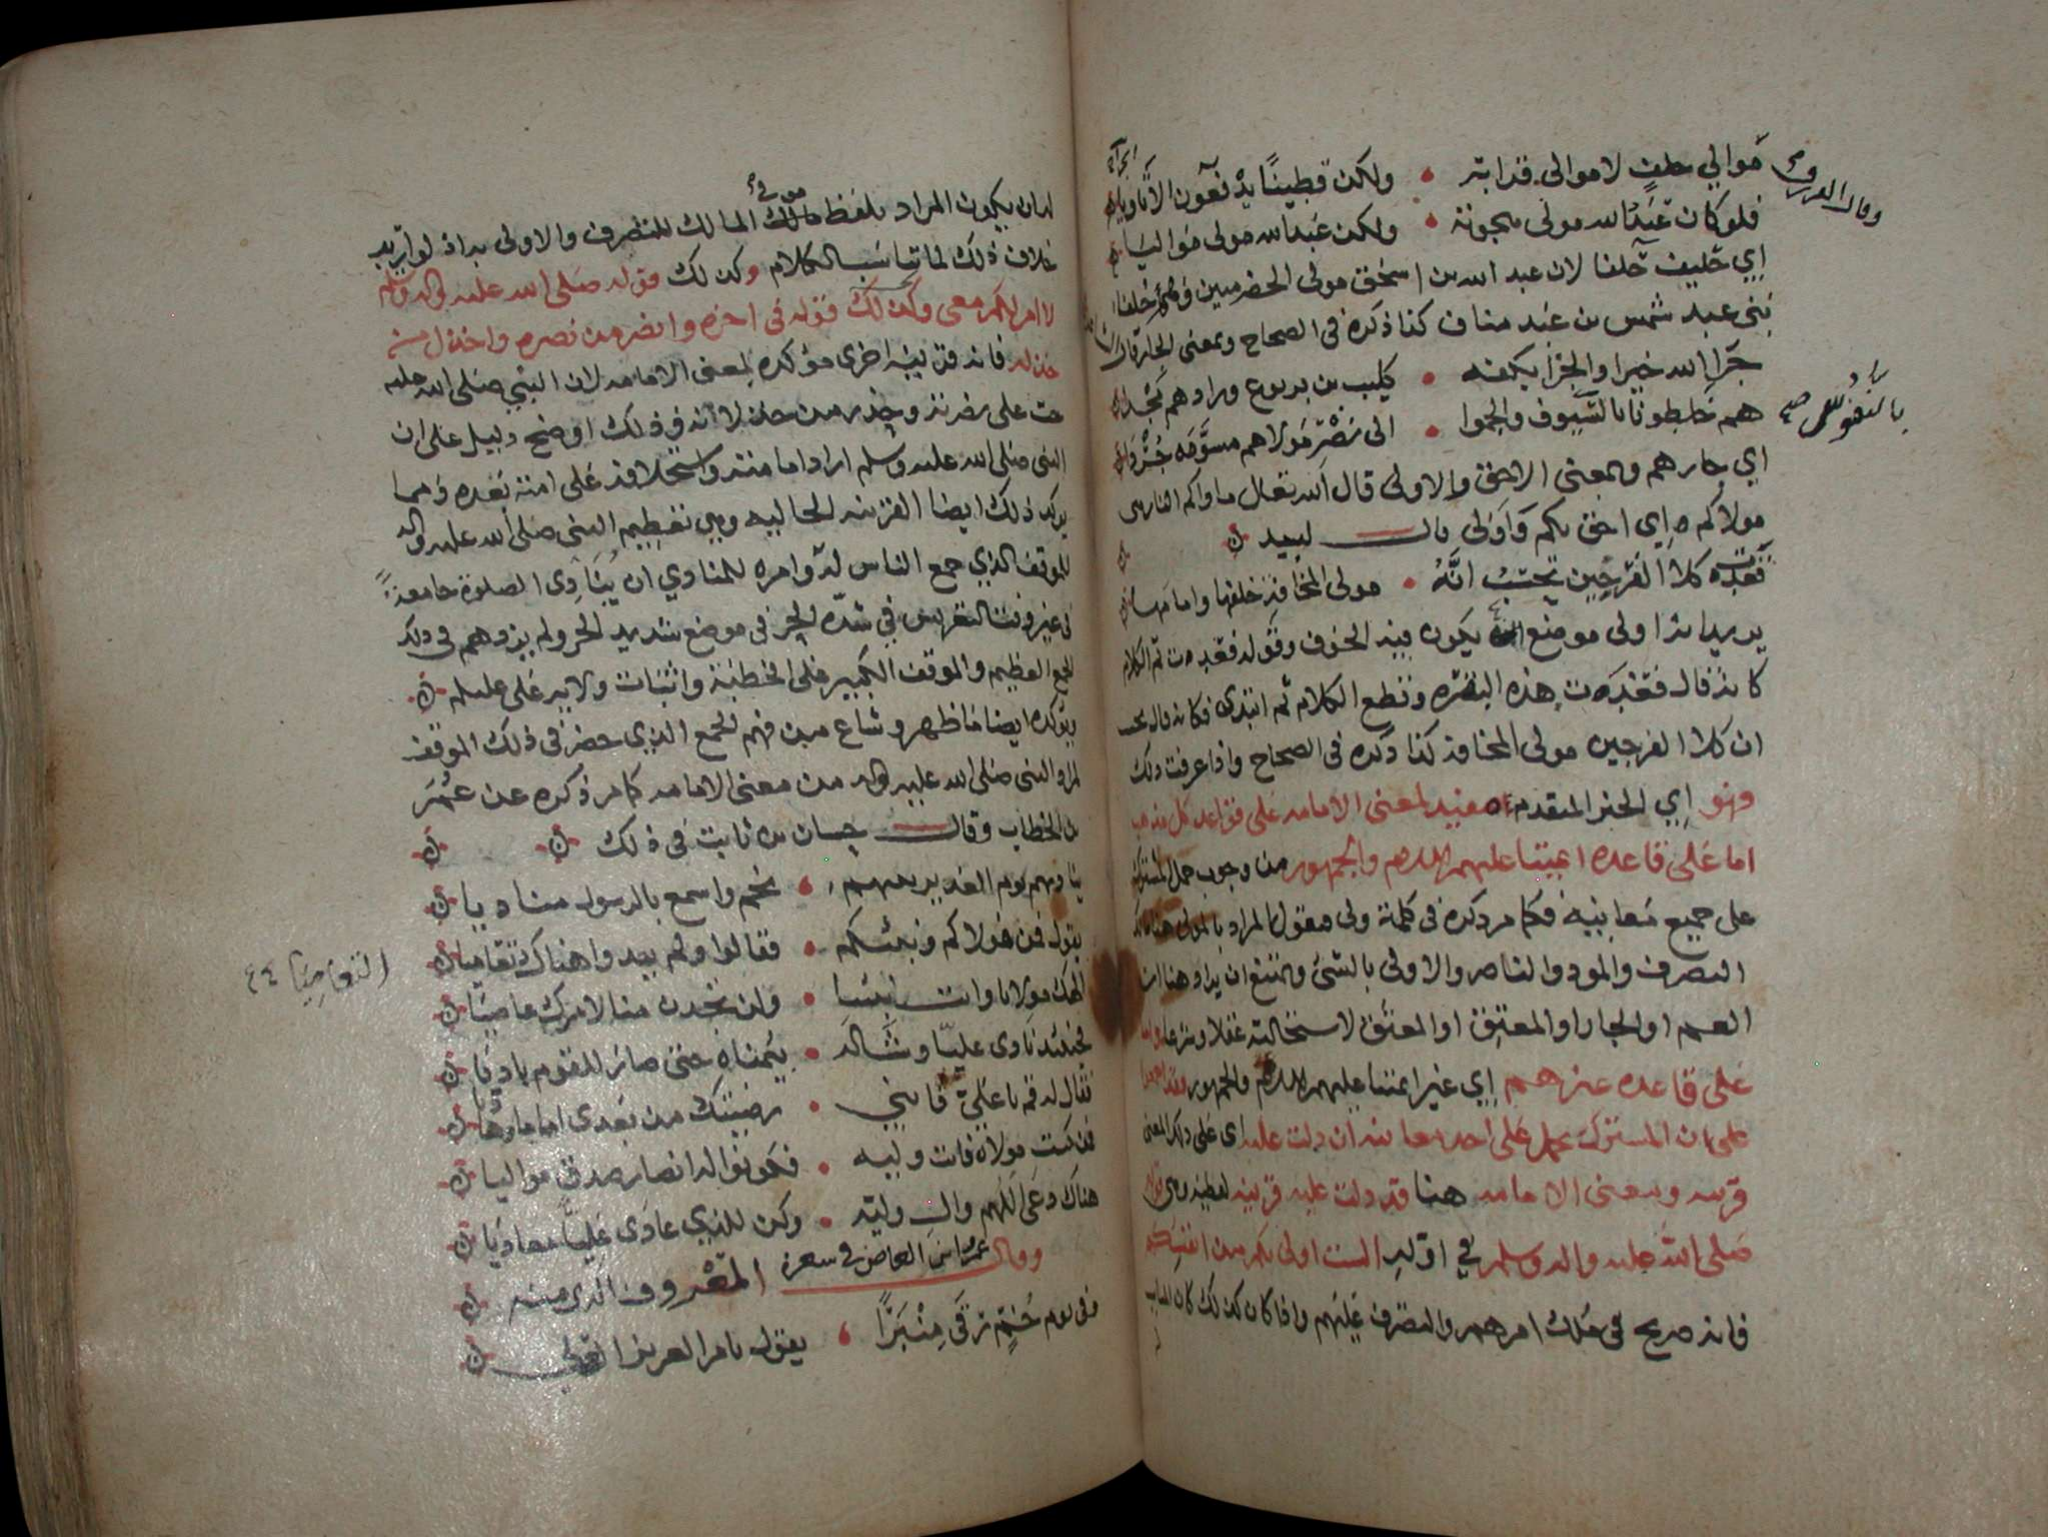 موالي حلف لا موالي قرابة • ولكن قطينا يدفعون الاتاويا
وقال الفرزدق
فلو كان عبد الله مولى هجوته • ولكن عبد الله مولى مواليا
اي حليف حلفا لان عبد الله بن اسحق مولى الحضرميين وهم حلفاء
بني عبد شمس بن عبد مناف كذا ذكره في الصحاح وبمعنى الجار قال
جزا الله خيرا والجزا بكفه • كليب بن يربوع وزادهم مجدا
هم خلطونا بالنفوس والجموا • الى نصر مولاهم مسومة جردا
بالنفوس صح
اي جارهم وبمعنى الاحق والاولى قال الله تعالى ماواكم النار هي
مولاكم اي احق بكم واولى قال لبيد
فغدت كلا الفرجين تحسب انه • مولى المخافة خلفها وامامها
يريد انه اولى موضع يكون فيه الخوف وقوله فغدت تم الكلام
كانه قال فغدت هذه البقره وقطع الكلام ثم ابتدى فكانه قال تحسب
ان كلا الفرجين مولى المخافة كذا ذكره في الصحاح واذا عرفت ذلك
وهو اي الخبر المتقدم مفيد لمعنى الامامه على قواعد كل مذهب
اما على قاعدة ائمتنا عليهم السلام والجمهور من وجوب حمل المشترك
على جميع معانيه فكما مر ذكره في كلمة ولي فنقول المراد بالمولى هنا مالك
التصرف والمودّ والناصر والاولى بالشئ وامتنع ان يراد هنا ابن
العم او الجار او المعتِق او المعتَق لاستحالته عقلا وشرعا واما
على قاعده غيرهم اي غير ائمتنا عليهم السلام والجمهور فقد اجمعوا
على ان المشترك يحمل على احد معانيه ان دلت عليه اي على ذلك المعنى
قرينه ومعنى الامامه هنا قد دلت عليه قرينه لفظيه وهي قوله
صلى الله عليه واله وسلم في اوله الست اولى بكم من انفسكم
فانه صريح في ملك امرهم والتصرف عليهم واذا كان كذلك كان المناسب
لهان يكون المراد بلفظ مولى المالك للتصرف والاولى به اذ لو اريد
خلاف ذلك لما تناسب الكلام وكذلك قوله صلى الله عليه واله وسلم
لا امر لكم معي وكذلك قوله في اخره وانصر من نصره واخذل من
خذله فانه قرينة اخرى مؤكده لمعنى الامامه لان النبي صلى الله عليه
حث على نصرته وحذر من خذلانه ففي ذلك اوضح دليل على ان
النبي صلى الله عليه وسلم اراد امامته واستخلافه على امته بعده ومما
يؤكد ذلك ايضا القرينه الحاليه وهي تعظيم النبي صلى الله عليه واله
للموقف الذي جمع الناس له وامره للمنادي ان ينادى الصلوة جامعة
في غير وقت التعريس في شدة الحر في موضع شديد الحر ولم يزدهم في ذلك
الجمع العظيم والموقف الكبير على الخطبة واثبات ولاية علي عليلم
ويؤكده ايضا ما ظهر وشاع من فهم الجمع الذي حضر في ذلك الموقف
لمراد النبي صلى الله عليه واله من معنى الامامه كما مر ذكره عن عمر
بن الخطاب وقال حسان بن ثابت في ذلك
يناديهم يوم الغدير نبيهم • بخم واسمع بالرسول مناديا
يقول فمن مولاكم ونبيكم • فقالوا ولم يبدوا هناك تعاميا
التعاميا
الهك مولانا وانت نبينا • ولن تجدن منا لامرك عاصيا
فحينئذ نادى عليا وشاله • بيمناه حتى صار للقوم باديا
فقال له قم يا علي فانني • رضيتك من بعدي اماما وهاديا
فمن كنت مولاه فانت وليه • فكونوا له انصار صدق مواليا
هناك دعى اللهم وال وليه • وكن للذي عادى عليا معاديا
وقال عمرو ابن العاص في شعره المعروف الذي منه
وفي يوم خم رقى منبرا • يقول بامر العزيز العلي